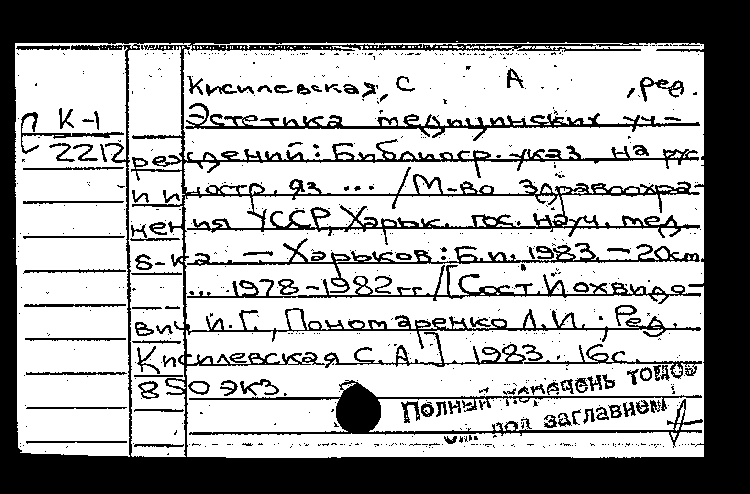 Кисилевская, С А , ред.
К-1
2212
Эстетика медицинских уч-
реждений: Библиогр. указ. на рус.
и иностр. яз. ... / М-во здравоохра-
нения УССР, Харьк. гос. науч. мед.
б-ка. — Харьков: Б.и. 1983. — 20см.
... 1978-1982гг. / [Сост. Йохвидо-
вич И.Г., Пономаренко Л.И.; Ред.
Кисилевская С.А.]. 1983. 16с.
850 экз.
Полный перечень томов
см. под заглавием